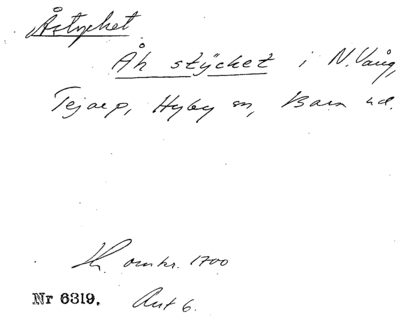 Åstycket.
Åh stÿcket i N. Vång,
Tejarp, Hyby sn, Bara hd.
Kh. omkr. 1700
Nr 6319. Akt 6.